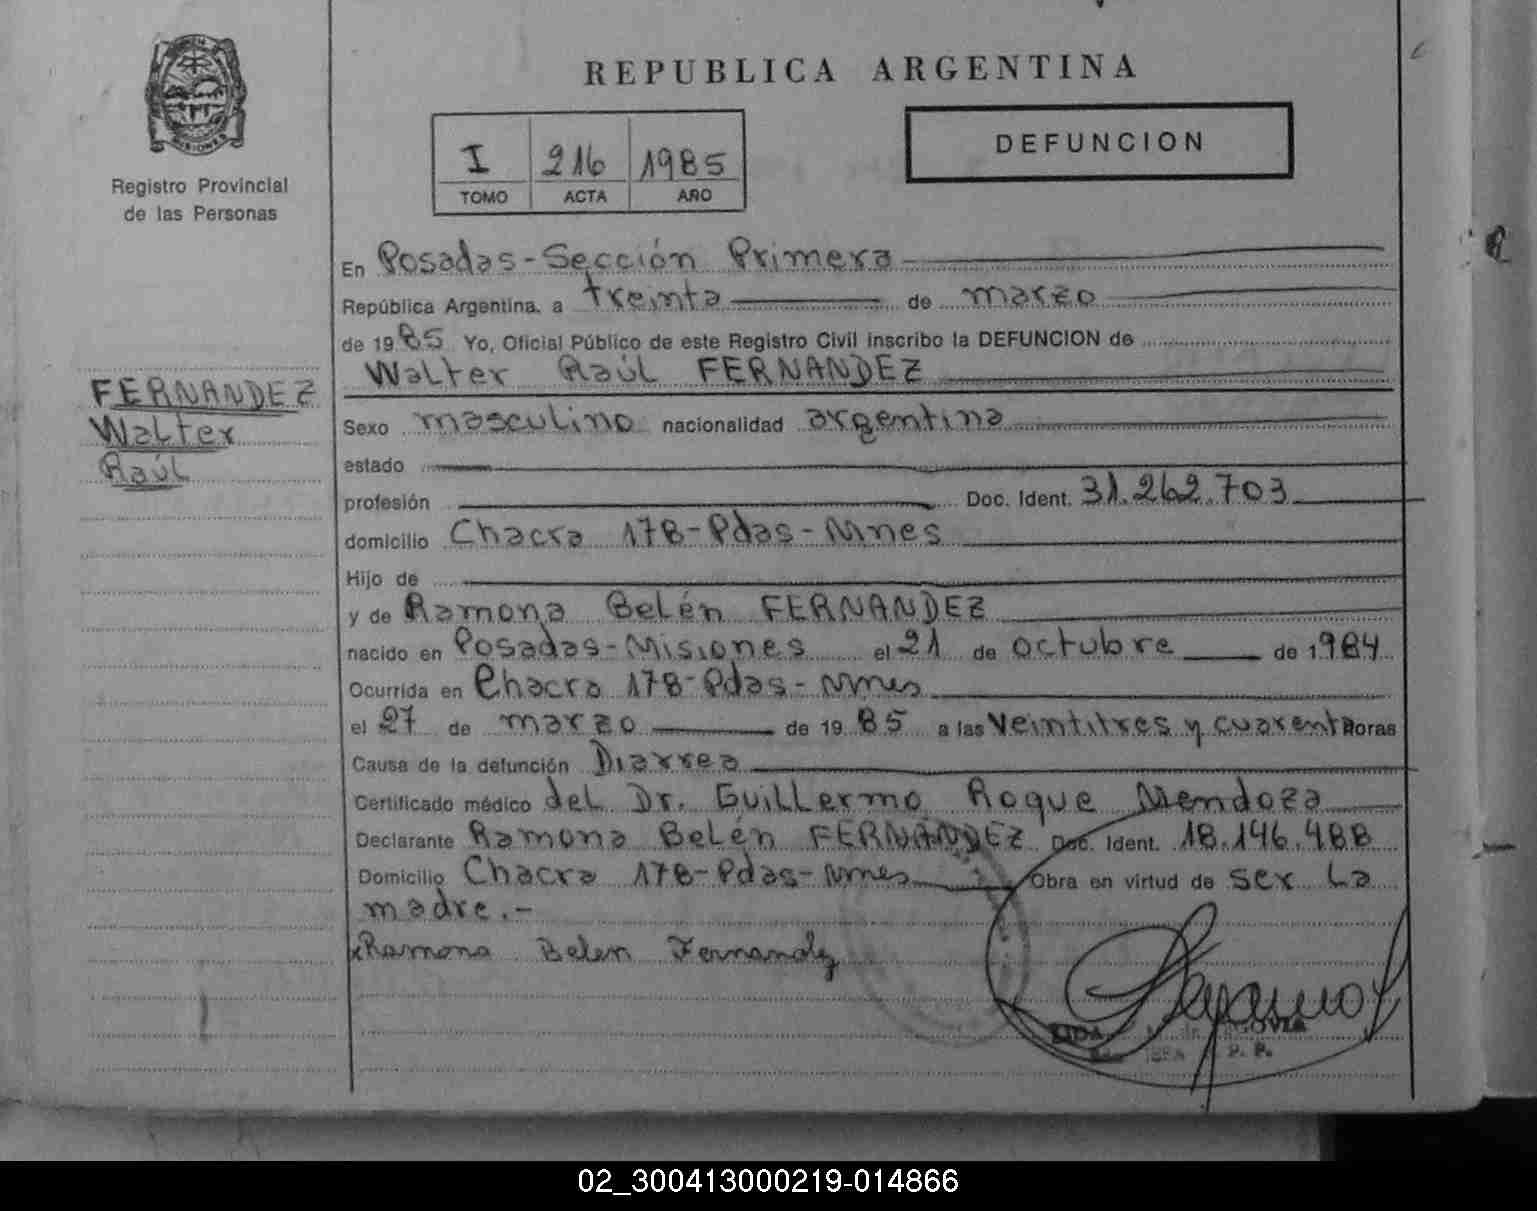 REPUBLICA ARGENTINA
MISIONES
Registro Provincial
de las Personas
I 216 1985
TOMO ACTA AÑO
DEFUNCION
FERNANDEZ
Walter
Raúl
En Posadas-Sección Primera
República Argentina, a treinta de marzo
de 1985 Yo, Oficial Público de este Registro Civil inscribo la DEFUNCION de
Walter Raúl FERNANDEZ
Sexo masculino nacionalidad argentina
estado
profesión Doc. Ident. 31.262.703
domicilio Chacra 178-Pdas-Mnes
Hijo de
y de Ramona Belén FERNANDEZ
nacido en Posadas-Misiones el 21 de octubre de 1984
Ocurrida en Chacra 178-Pdas-Mnes
el 27 de marzo de 1985 a las veintitres y cuarenta Horas
Causa de la defunción Diarrea
Certificado médico del Dr. Guillermo Roque Mendoza
Declarante Ramona Belén FERNANDEZ Doc. Ident. 18.146.488
Domicilio Chacra 178-Pdas-Mnes Obra en virtud de ser la
madre.-
Ramona Belen Fernandez
02_300413000219-014866